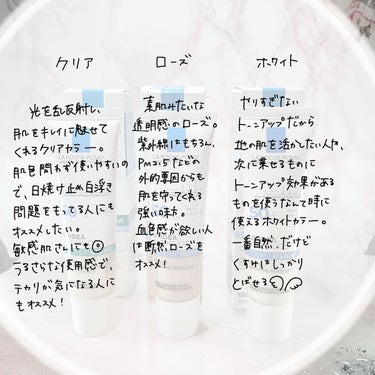 クリア
光を乱反射し、
肌をキレイに魅せて
くれるクリアカラー。
肌色問わず使いやすいの
で、日焼け止め白浮き
問題をもってる人にも
オススメしたい。
敏感肌さんにも
うるさらな使用感で、
テカリが気になる人に
もオススメ!
ローズ
素肌みたいな
透明感のローズ。
紫外線はもちろん、
PM2.5などの
外的要因からも
肌を守ってくれる
強い味方。
血色感が欲しい人
は断然ローズを
オススメ!
ホワイト
やりすぎない
トーンアップだから
地の肌を活かしたい人や、
次に乗せるものに
トーンアップ効果がある
ものを使うなんて時に
使えるホワイトカラー。
一番自然、だけど
くすみはしっかり
とばせる